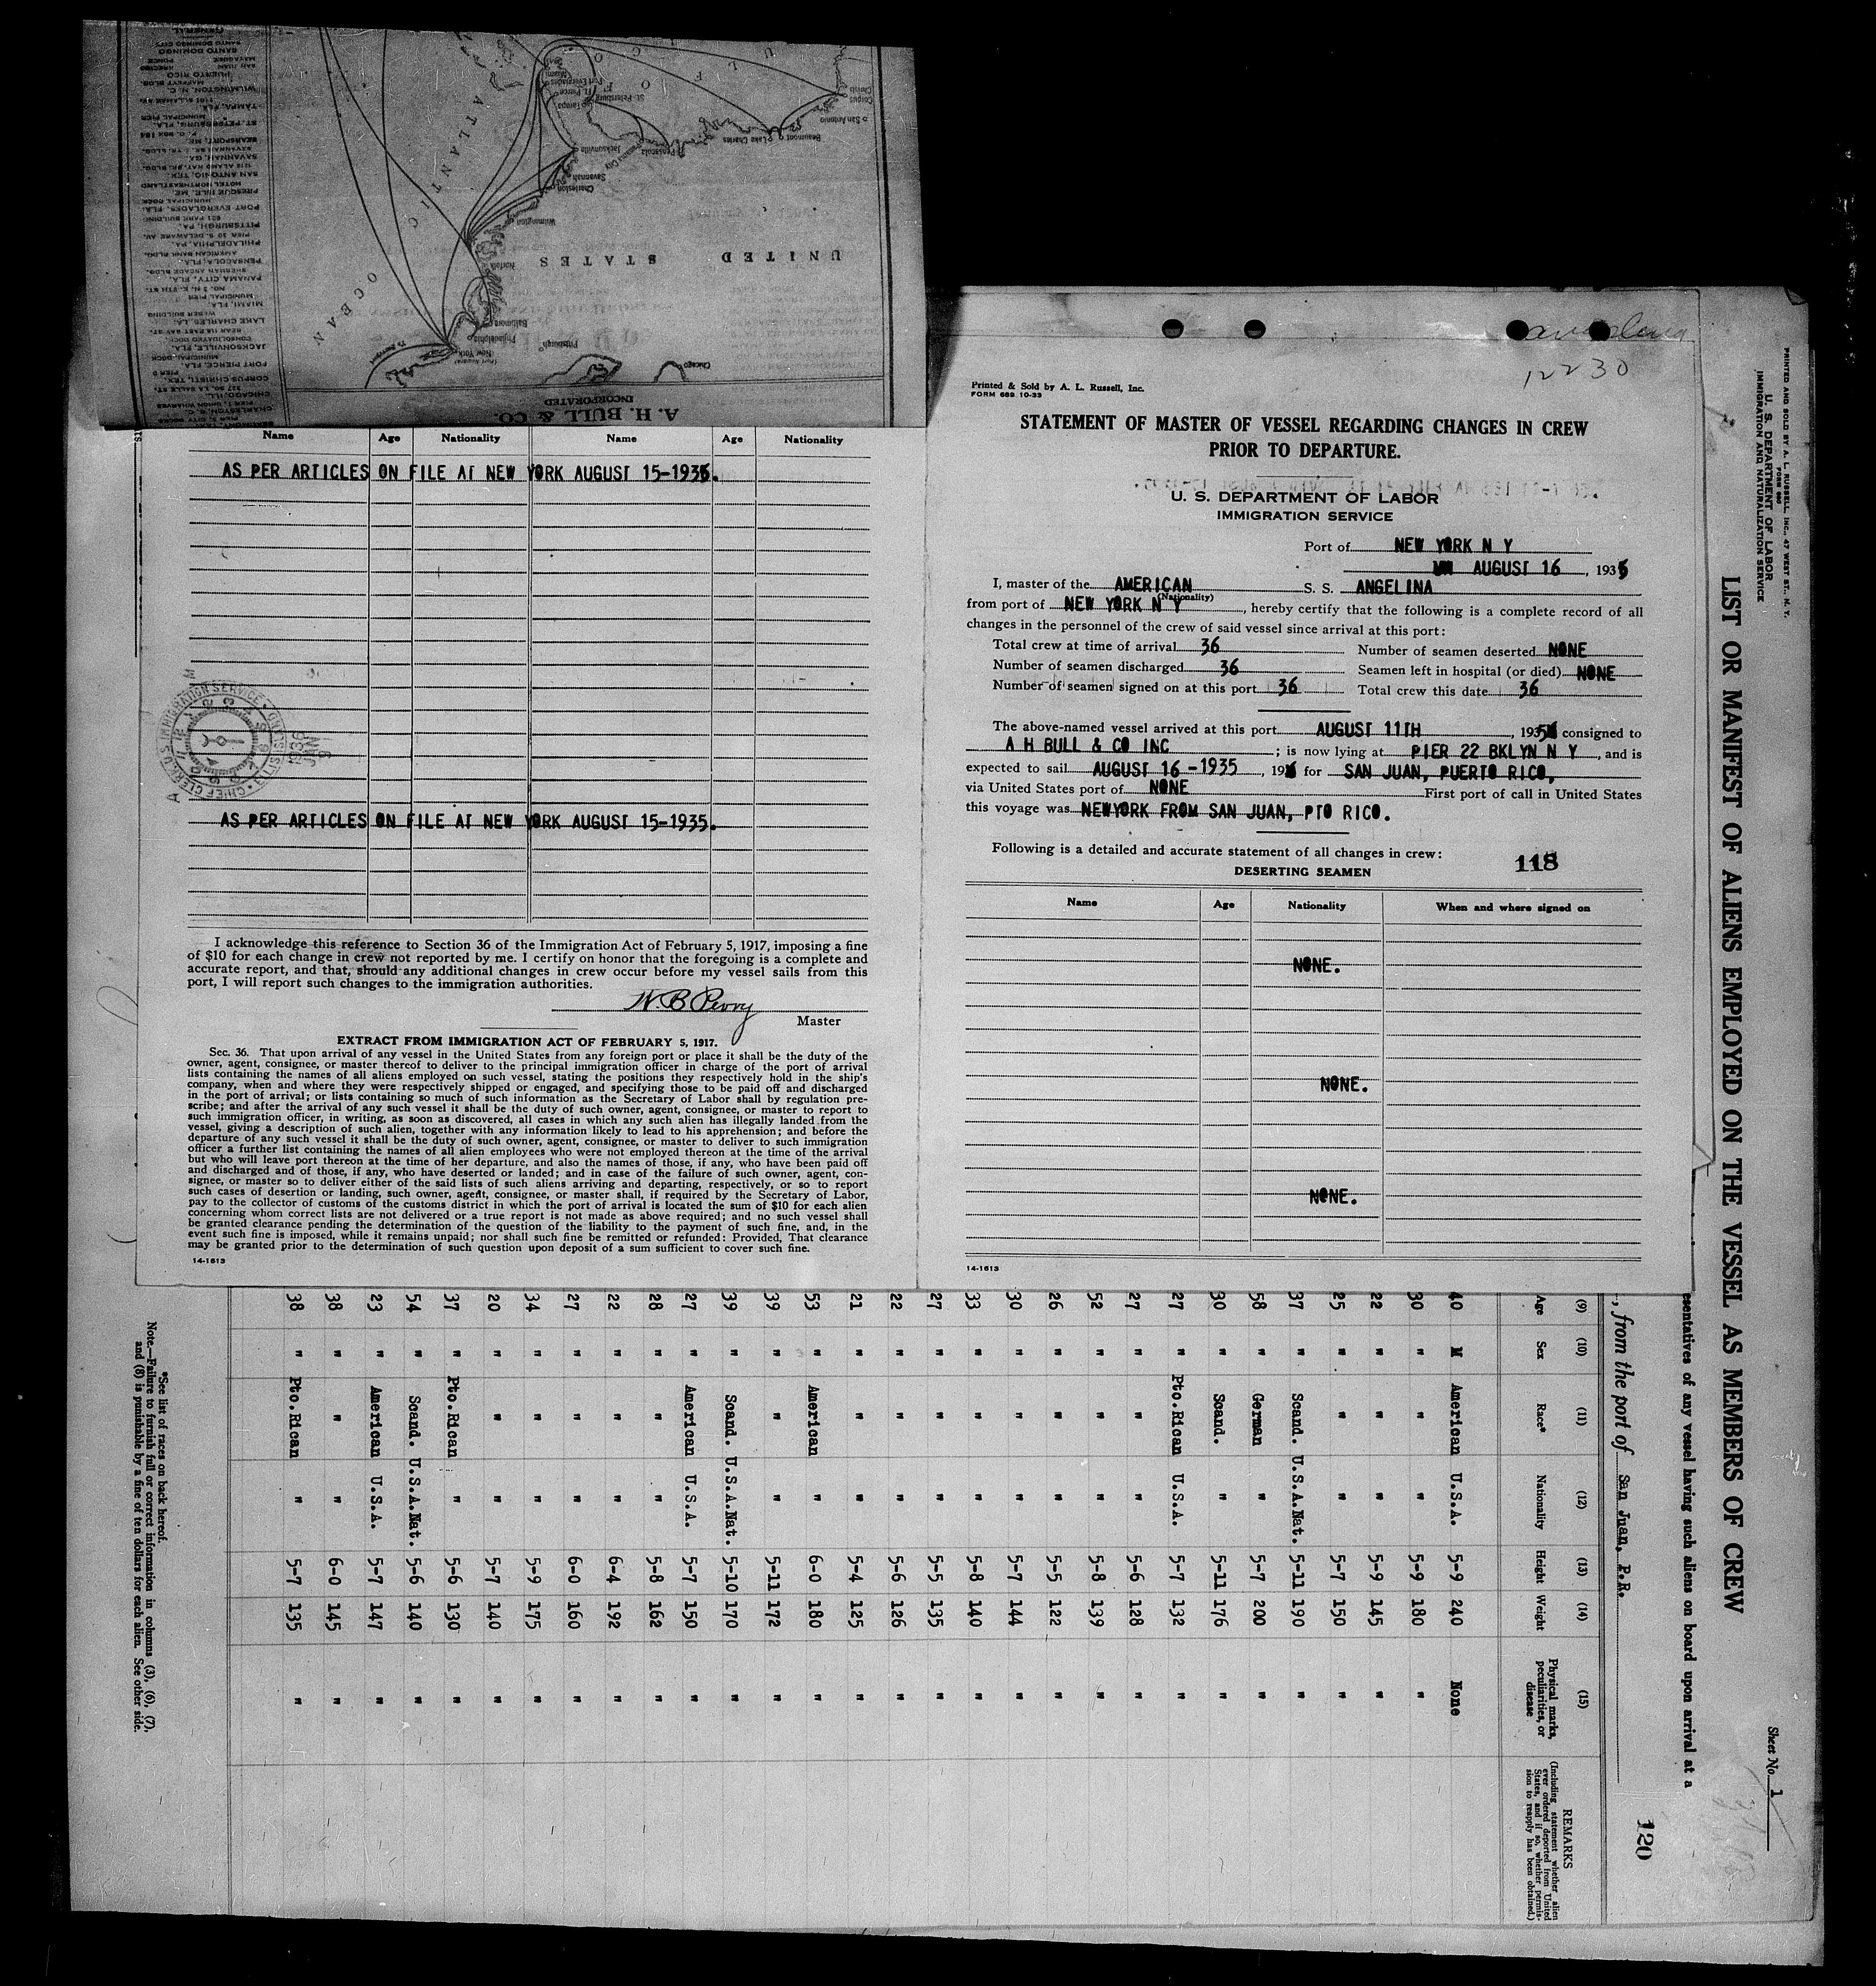 GENERAL
SANTO DOMINGO CITY
SANTO DOMINGO
MAYAGUEZ PONCE
SAN JUAN ARECIBO
PUERTO RICO
WILMINGTON, N. C.
TAMPA, FLA.
MUNICIPAL PIER
ST. PETERSBURG, FLA.
SEARSPORT, ME.
SAVANNAH, GA.
SAN ANTONIO, TEX.
HOTEL NORTHEASTLAND
PRESQUE ISLE, ME.
MUNICIPAL DOCK
PORT EVERGLADES, FLA.
621 PARK BUILDING
PITTSBURGH, PA.
PIER 20 S. DELAWARE AV.
PHILADELPHIA, PA.
AMERICAN BANK BLDG.
PENSACOLA, FLA.
SHERMAN ARCADE BLDG.
PANAMA CITY, FLA.
MUNICIPAL PIER
MIAMI, FLA.
WEBER BUILDING
LAKE CHARLES, LA.
CONSOLIDATED DOCK
JACKSONVILLE, FLA.
MUNICIPAL DOCK
FORT PIERCE, FLA.
PIER 2
CORPUS CHRISTI, TEX.
CHICAGO, ILL.
PIER 1, UNION WHARVES
CHARLESTON, S. C.
A. H. BULL & CO.
INCORPORATED
UNITED STATES
ATLANTIC
OCEAN
GULF OF
Chicago
Pittsburgh
New York
Philadelphia
Baltimore
Norfolk
Wilmington
Charleston
Savannah
Jacksonville
Panama City
Pensacola
Lake Charles
Beaumont
San Antonio
Corpus Christi
St. Petersburg
Tampa
Ft. Pierce
Port Everglades
Miami
Name Age Nationality Name Age Nationality
AS PER ARTICLES ON FILE AT NEW YORK AUGUST 15-1935.
AS PER ARTICLES ON FILE AT NEW YORK AUGUST 15-1935.
CHIEF CLERK, U.S. IMMIGRATION SERVICE
1936
JAN
9
I acknowledge this reference to Section 36 of the Immigration Act of February 5, 1917, imposing a fine
of $10 for each change in crew not reported by me. I certify on honor that the foregoing is a complete and
accurate report, and that, should any additional changes in crew occur before my vessel sails from this
port, I will report such changes to the immigration authorities.
W. B Perry
Master
EXTRACT FROM IMMIGRATION ACT OF FEBRUARY 5, 1917.
Sec. 36. That upon arrival of any vessel in the United States from any foreign port or place it shall be the duty of the
owner, agent, consignee, or master thereof to deliver to the principal immigration officer in charge of the port of arrival
lists containing the names of all aliens employed on such vessel, stating the positions they respectively hold in the ship's
company, when and where they were respectively shipped or engaged, and specifying those to be paid off and discharged
in the port of arrival; or lists containing so much of such information as the Secretary of Labor shall by regulation pre-
scribe; and after the arrival of any such vessel it shall be the duty of such owner, agent, consignee, or master to report to
such immigration officer, in writing, as soon as discovered, all cases in which any such alien has illegally landed from the
vessel, giving a description of such alien, together with any information likely to lead to his apprehension; and before the
departure of any such vessel it shall be the duty of such owner, agent, consignee, or master to deliver to such immigration
officer a further list containing the names of all alien employees who were not employed thereon at the time of the arrival
but who will leave port thereon at the time of her departure, and also the names of those, if any, who have been paid off
and discharged and of those, if any, who have deserted or landed; and in case of the failure of such owner, agent, con-
signee, or master so to deliver either of the said lists of such aliens arriving and departing, respectively, or so to report
such cases of desertion or landing, such owner, agent, consignee, or master shall, if required by the Secretary of Labor,
pay to the collector of customs of the customs district in which the port of arrival is located the sum of $10 for each alien
concerning whom correct lists are not delivered or a true report is not made as above required; and no such vessel shall
be granted clearance pending the determination of the question of the liability to the payment of such fine, and, in the
event such fine is imposed, while it remains unpaid; nor shall such fine be remitted or refunded: Provided, That clearance
may be granted prior to the determination of such question upon deposit of a sum sufficient to cover such fine.
14-1613
12230
Printed & Sold by A. L. Russell, Inc.
FORM 689 10-33
STATEMENT OF MASTER OF VESSEL REGARDING CHANGES IN CREW
PRIOR TO DEPARTURE.
U. S. DEPARTMENT OF LABOR
IMMIGRATION SERVICE
Port of NEW YORK N Y
AUGUST 16, 1935
I, master of the AMERICAN S. S. ANGELINA
(Nationality)
from port of NEW YORK N Y, hereby certify that the following is a complete record of all
changes in the personnel of the crew of said vessel since arrival at this port:
Total crew at time of arrival 36 Number of seamen deserted NONE
Number of seamen discharged 36 Seamen left in hospital (or died) NONE
Number of seamen signed on at this port 36 Total crew this date 36
The above-named vessel arrived at this port AUGUST 11TH, 1935 consigned to
A H BULL & CO INC; is now lying at PIER 22 BKLYN N Y, and is
expected to sail AUGUST 16-1935, 19 for SAN JUAN, PUERTO RICO,
via United States port of NONE First port of call in United States
this voyage was NEWYORK FROM SAN JUAN, PTO RICO.
Following is a detailed and accurate statement of all changes in crew:
118
DESERTING SEAMEN
Name Age Nationality When and where signed on
NONE.
NONE.
NONE.
14-1613
PRINTED AND SOLD BY A. L. RUSSELL, INC., 47 WEST ST., N. Y.
FORM 680
U. S. DEPARTMENT OF LABOR
IMMIGRATION AND NATURALIZATION SERVICE
Sheet No. 1
LIST OR MANIFEST OF ALIENS EMPLOYED ON THE VESSEL AS MEMBERS OF CREW
esentatives of any vessel having such aliens on board upon arrival at a
120
, from the port of San Juan, P.R.
(9) (10) (11) (12) (13) (14) (15)
Age Sex Race* Nationality Height Weight Physical marks, peculiarities, or disease
REMARKS
(Including statement whether alien
ever ordered deported from United
States, and if so, whether permis-
sion to reapply has been obtained.)
40 M American U.S.A. 5-9 240 None
30 " " " 5-9 180 "
22 " " " 5-9 145 "
25 " " " 5-7 150 "
37 " Scand. U.S.A.Nat. 5-11 190 "
58 " German " 5-7 200 "
30 " Scand. " 5-11 176 "
27 " Pto.Rican U.S.A. 5-7 132 "
27 " " " 5-6 128 "
52 " " " 5-8 139 "
26 " " " 5-5 122 "
30 " " " 5-7 144 "
33 " " " 5-8 140 "
27 " " " 5-5 135 "
22 " " " 5-6 126 "
21 " " " 5-4 125 "
53 " American " 6-0 180 "
39 " " " 5-11 172 "
39 " Scand. U.S.A.Nat. 5-10 170 "
27 " American U.S.A. 5-7 150 "
28 " " " 5-8 162 "
22 " " " 6-4 192 "
27 " " " 6-0 160 "
34 " " " 5-9 175 "
20 " " " 5-7 140 "
37 " Pto.Rican " 5-6 130 "
54 " Scand. U.S.A.Nat. 5-6 140 "
23 " American U.S.A. 5-7 147 "
38 " " " 6-0 145 "
38 " Pto.Rican " 5-7 135 "
*See list of races on back hereof.
Note.—Failure to furnish full or correct information in columns (3), (6), (7),
and (8) is punishable by a fine of ten dollars for each alien. See other side.